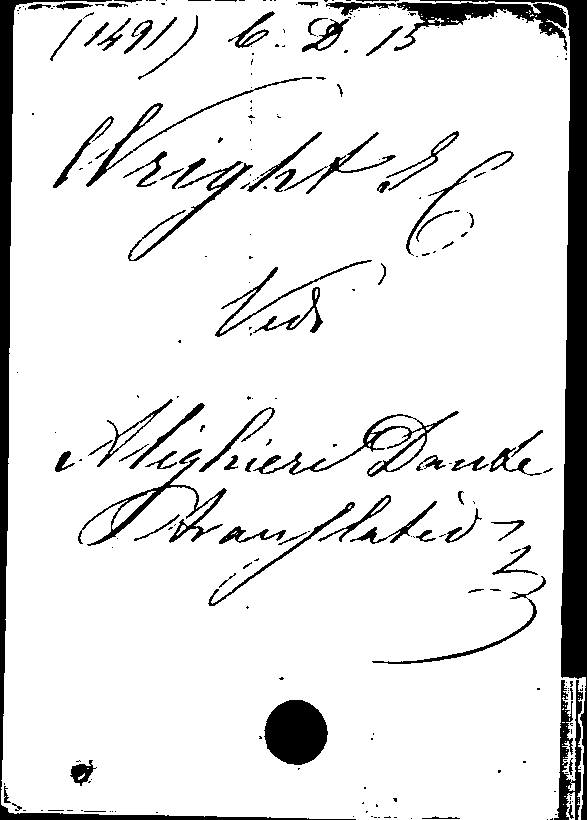 (1491) C. D. 15
Wright I C
Vedi
Alighieri Dante
translated